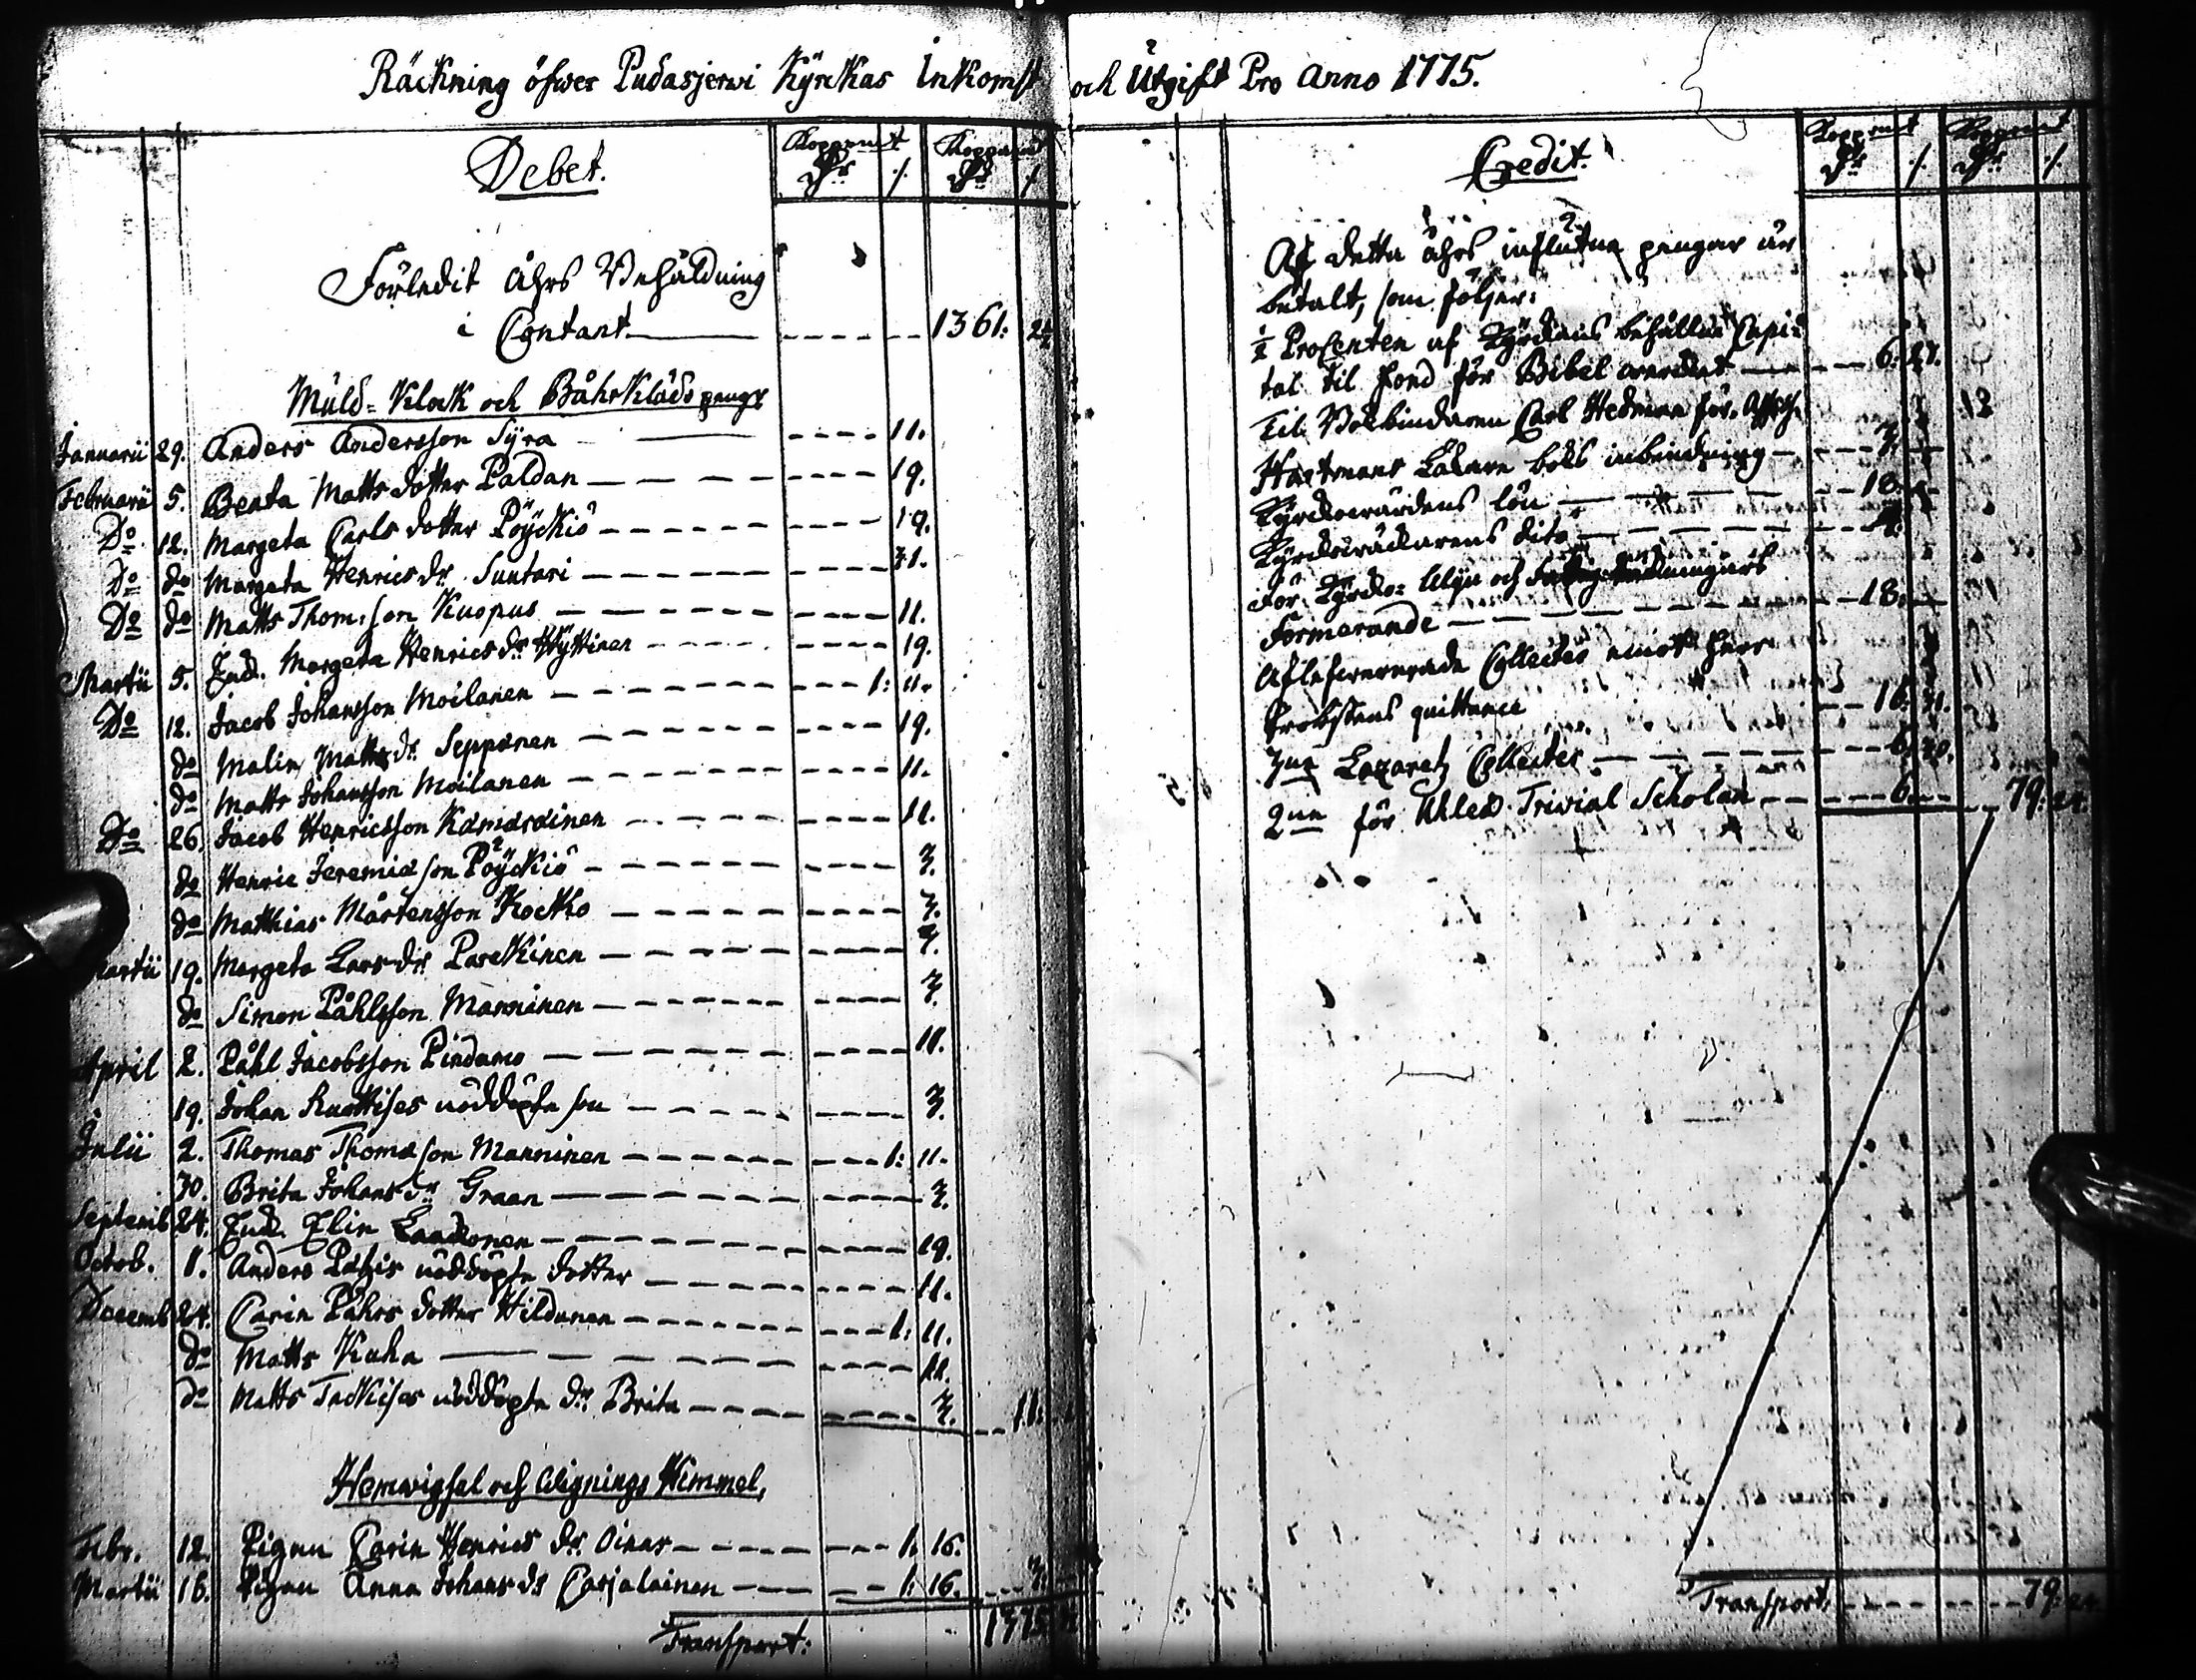 Räckning öfwer Pudasjerwi Kyrckas Inkomst och Utgift Pro Anno 1775.
Debet.
Koppar mt
Koppar mt
Förledit Åhrs Behåldning
i Contant 1361: 2½
Muld= Klock och Båhrklädspengr
Januarii 29. Anders Andersson Syra 11.
Februarii 5. Beata Matts dotter Paldan 19.
Do 12. Margeta Carls dotter Pöyckiö 19.
Do do Margeta Henrics dr Suutari 31.
Do do Matts Thomsson Kuopus 11.
Martii 5. Enck. Margeta Henrics dr Hyttinen 19.
Do 12. Jacob Johansson Moilanen 1: 11.
do Malin Matts dr Seppänen 19.
do Matts Johansson Moilanen 11.
Do 26. Jacob Henricsson Kämäräinen 11.
do Henric Jeremiæson Pöyckiö 3.
do Matthias Mårtensson Kocko 3.
Martii 19. Margeta Lars dr Parckinen 3.
do Simon Påhlsson Manninen 3.
April 2. Påhl Jacobsson Pindamo 11.
19. Johan nöddöpte son 3.
Julii 2. Thomas Thomæson Manninen 1: 11.
30. Brita Johans dr Graan 3.
Septemb 24. Enck. Elin Laackonen 19.
Octob. 1. Anders nöddöpte dotter 11.
Decemb 24. Carin Påhls dotter Hildunen 1: 11.
do Matts Kuha 11.
do Matts nöddöpte dr Brita 3. 11:
Hemwigsel och Wignings Himmel,
Febr. 12. Pigan Carin Henrics dr Oinas 1: 16.
Martii 16. Pigan Anna Johans dr Carjalainen 1: 16. 3:
Transport: 1375:
Credit.
Koppar mt
Koppar mt
Af detta åhrs influtna pengar är
betalt, som följer:
½ Procenten af Kyrckans behållna Capi=
tal til fond för Bibel 6: 27.
Til Bokbindaren Carl Hedman för
Haartmans Läkare boks inbindning 3.
Kyrckowärdens lön 18.
Kyrckowäckarens dito
För Kyrcko= Wijn och
formerande 18:
Aflefwererade Collecter emot herr
Probstens quittance 16: 31.
3ne Lazaretz Collecter 6: 20.
2ne för Uhleå Trivial Scholan 6. 79: 24.
Transport: 79: 24.